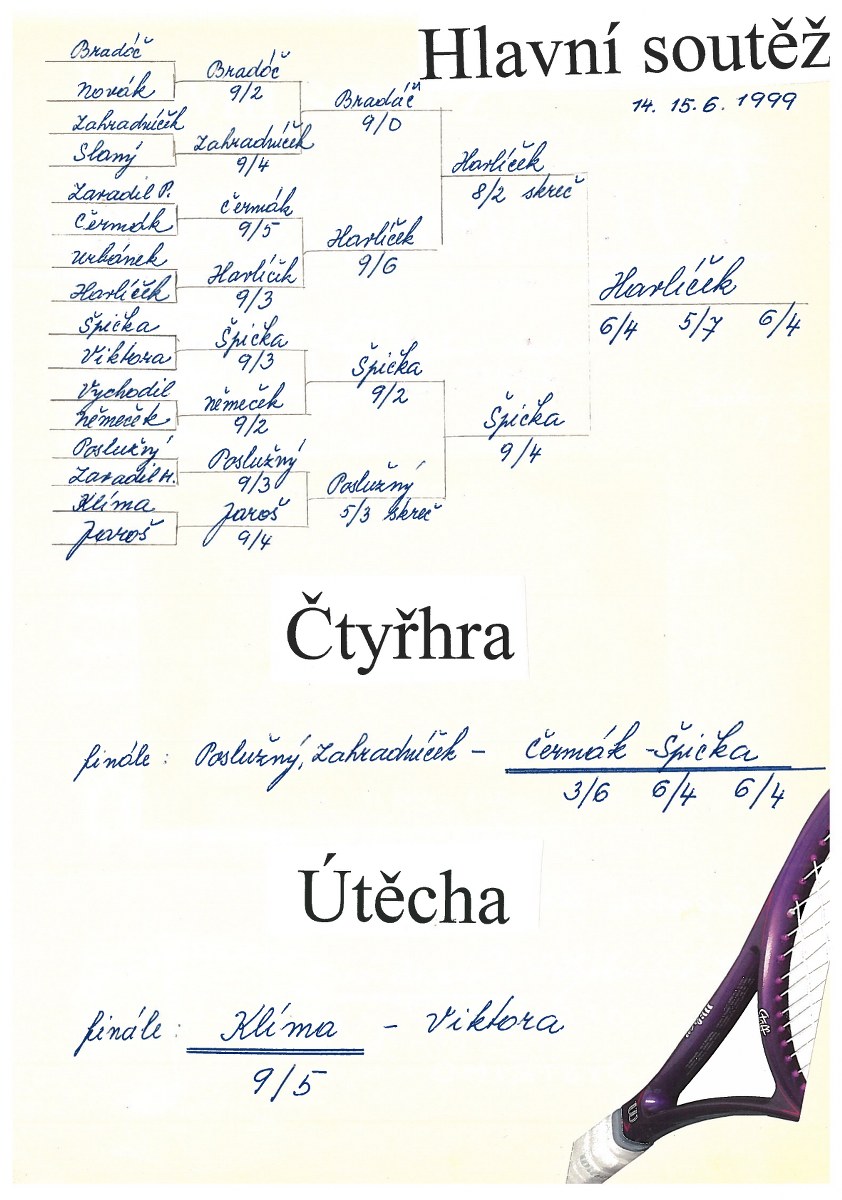 Hlavní soutěž
14. 15. 6. 1999
Bradáč
Novák
Zahradníček
Slaný
Zavadil P.
Čermák
Urbánek
Havlíček
Špička
Viktora
Vychodil
Němeček
Poslužný
Zavadil H.
Klíma
Jaroš
Bradáč
9/2
Zahradníček
9/4
Čermák
9/5
Havlíček
9/3
Špička
9/3
Němeček
9/2
Poslužný
9/3
Jaroš
9/4
Bradáč
9/0
Havlíček
9/6
Špička
9/2
Poslužný
5/3 skreč
Havlíček
8/2 skreč
Špička
9/4
Havlíček
6/4 5/7 6/4
Čtyřhra
finále: Poslužný, Zahradníček - Čermák - Špička
3/6 6/4 6/4
Útěcha
finále: Klíma - Viktora
9/5